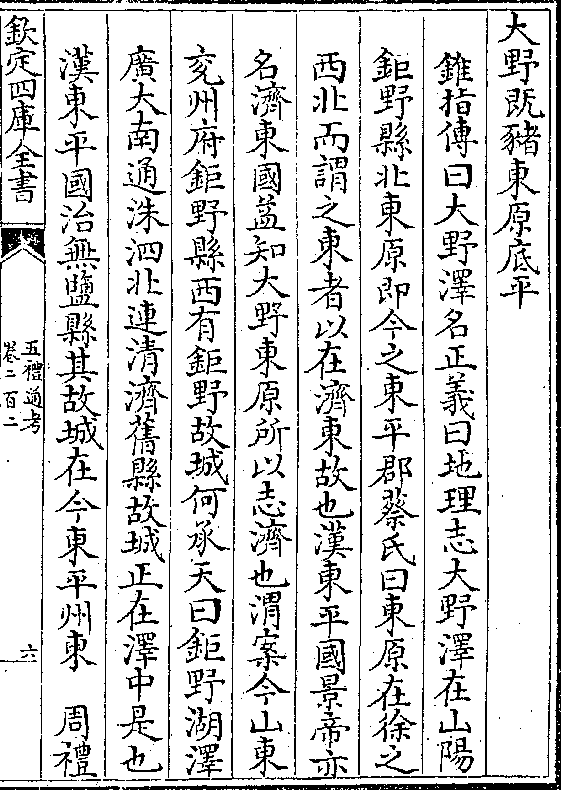 大野既豬東原底平
錐指傳曰大野澤名正義曰地理志大野澤在山陽
鉅野縣北東原即今之東平郡蔡氏曰東原在徐之
西北而謂之東者以在濟東故也漢東平國景帝亦
名濟東國益知大野東原所以志濟也渭案今山東
兗州府鉅野縣西有鉅野故城何承天曰鉅野湖澤
廣大南通洙泗北連清濟舊縣故城正在澤中是也
漢東平國治無鹽縣其故城在今東平州東　周禮
欽定四庫全書
五禮通考
卷二百二
六